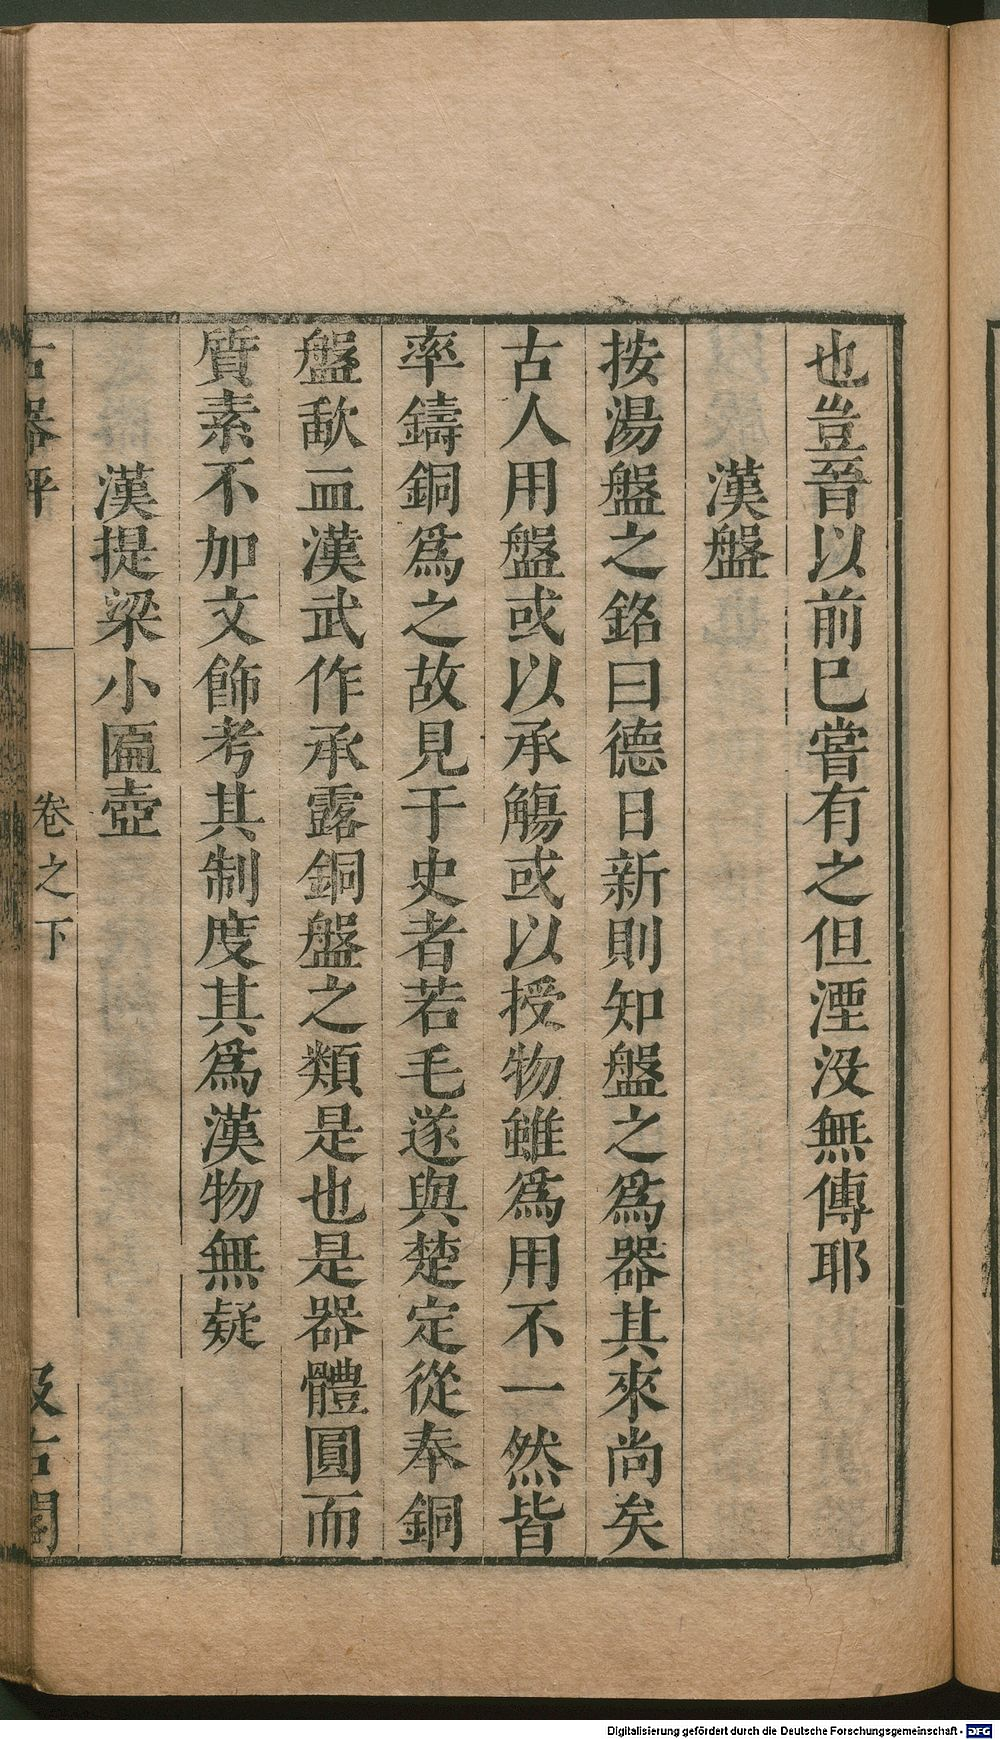 也豈晉以前巳嘗有之但湮没無傳耶
漢盤
按湯盤之銘曰德日新則知盤之爲器其來尚矣
古人用盤或以承觴或以授物雖爲用不一然皆
率鑄銅爲之故見于史者若毛遂與楚定從奉銅
盤歃血漢武作承露銅盤之類是也是器體圓而
質素不加文飾考其制度其爲漢物無疑
漢提梁小匾壺
古器評 卷之下 汲古閣
Digitalisierung gefördert durch die Deutsche Forschungsgemeinschaft - DFG